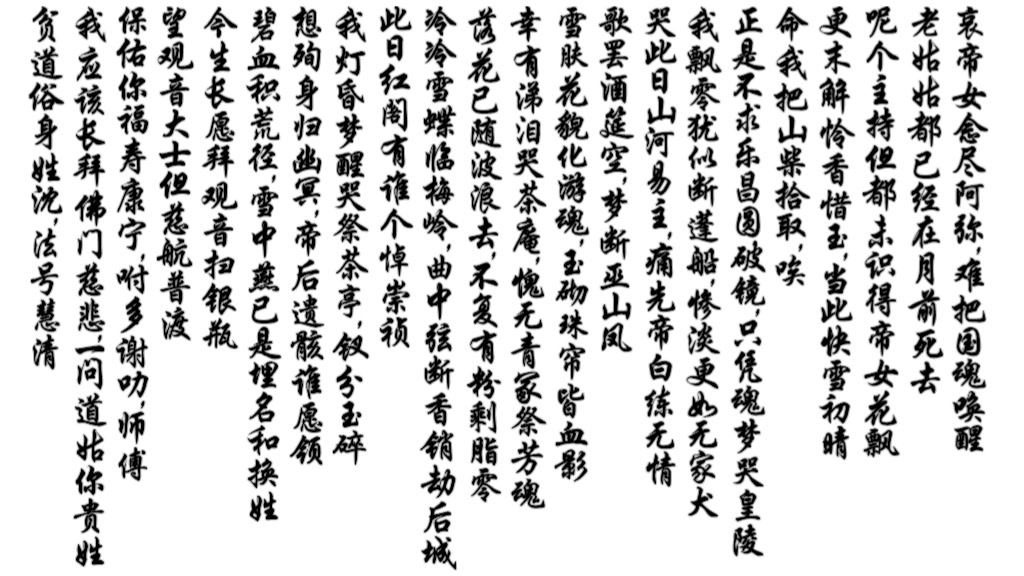 哀帝女念尽阿弥，难把国魂唤醒
老姑姑都已经在月前死去
呢个主持但都未识得帝女花飘
更未解怜香惜玉，当此快雪初晴
命我把山柴拾取，唉
正是不求乐昌圆破镜，只凭魂梦哭皇陵
我飘零犹似断蓬船，惨淡更如无家犬
哭此日山河易主，痛先帝白练无情
歌罢酒筵空，梦断巫山凤
雪肤花貌化游魂，玉砌珠帘皆血影
幸有涕泪哭茶庵，愧无青冢祭芳魂
落花已随波浪去，不复有粉剩脂零
冷冷雪蝶临梅岭，曲中弦断香销劫后城
此日红阁有谁个悼崇祯
我灯昏梦醒哭祭茶亭，钗分玉碎
想殉身归幽冥，帝后遗骸谁愿领
碧血积荒径，雪中燕已是埋名和换姓
今生长愿拜观音扫银瓶
望观音大士但慈航普渡
保佑你福寿康宁，咐多谢叻，师傅
我应该长拜佛门慈悲，一问道姑你贵姓
贫道俗身姓沈，法号慧清